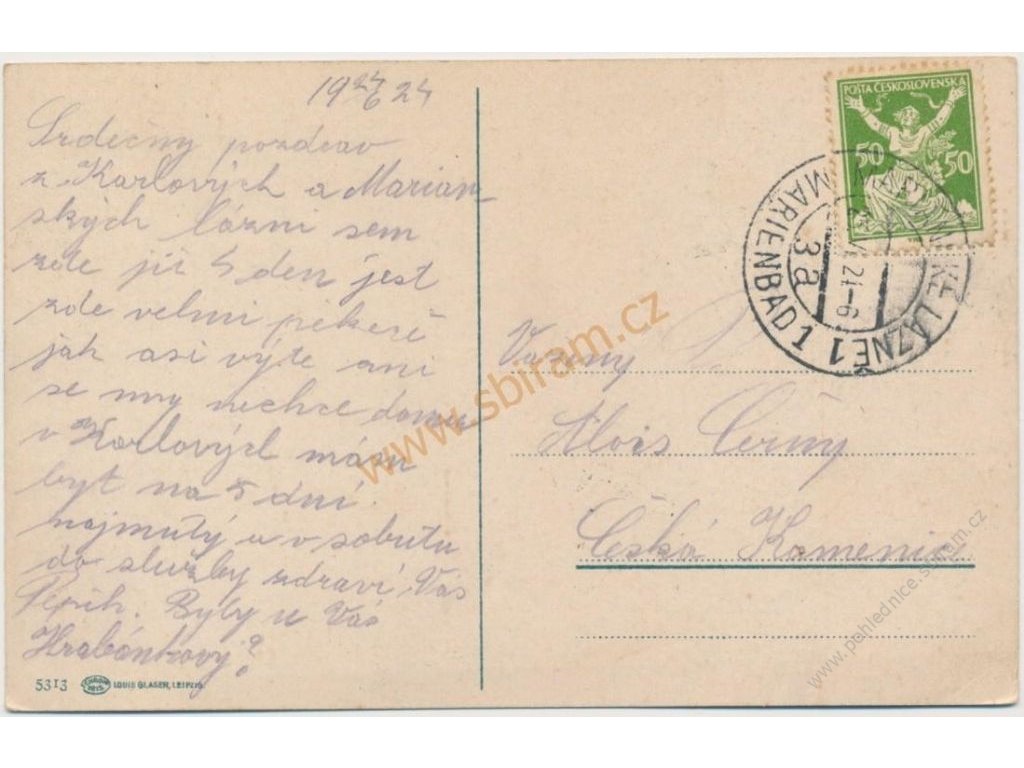 19 24/6 24
Srdečný pozdrav
z Karlových a Marian
ských lázni sem
zde již 5 den jest
zde velmi pěkně
jak asi výte ani
se mny nechce domu
v Karlových mám
byt na 5 dní
najmutý a v sobotu
do služby zdraví Vás
Pepik. Byly u Vás
Hrabánkovy?
5313 LOUIS GLASER, LEIPZIG.
POŠTA ČESKOSLOVENSKÁ
50 50
LÁZNĚ 1
MARIENBAD 1
3a
24-6
Vážený
Alois Černý
Česká Kamenice
www.sbiram.cz
www.pohlednice.sbiram.cz